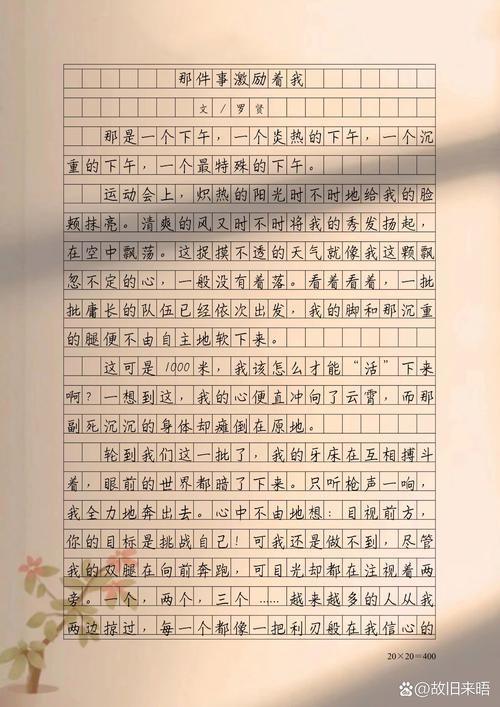 那件事激励着我
文/罗贤
那是一个下午，一个炎热的下午，一个沉
重的下午，一个最特殊的下午。
运动会上，炽热的阳光时不时地给我的脸
颊抹亮。清爽的风又时不时将我的秀发扬起，
在空中飘荡。这捉摸不透的天气就像我这颗飘
忽不定的心，一般没有着落。看着看着，一批
批庸长的队伍已经依次出发，我的脚和那沉重
的腿便不由自主地软下来。
这可是1000米，我该怎么才能“活”下来
啊？一想到这，我的心便直冲向了云霄，而那
副死沉沉的身体却瘫倒在原地。
轮到我们这一批了，我的牙床在互相搏斗
着，眼前的世界都暗了下来。只听枪声一响，
我全力地奔出去。心中不由地想：目视前方，
你的目标是挑战自己！可我还是做不到，尽管
我的双腿在向前奔跑，可目光却都在注视着两
旁。一个，两个，三个……越来越多的人从我
两边掠过，每一个都像一把利刃般在我信心的
20×20=400
故旧来晤